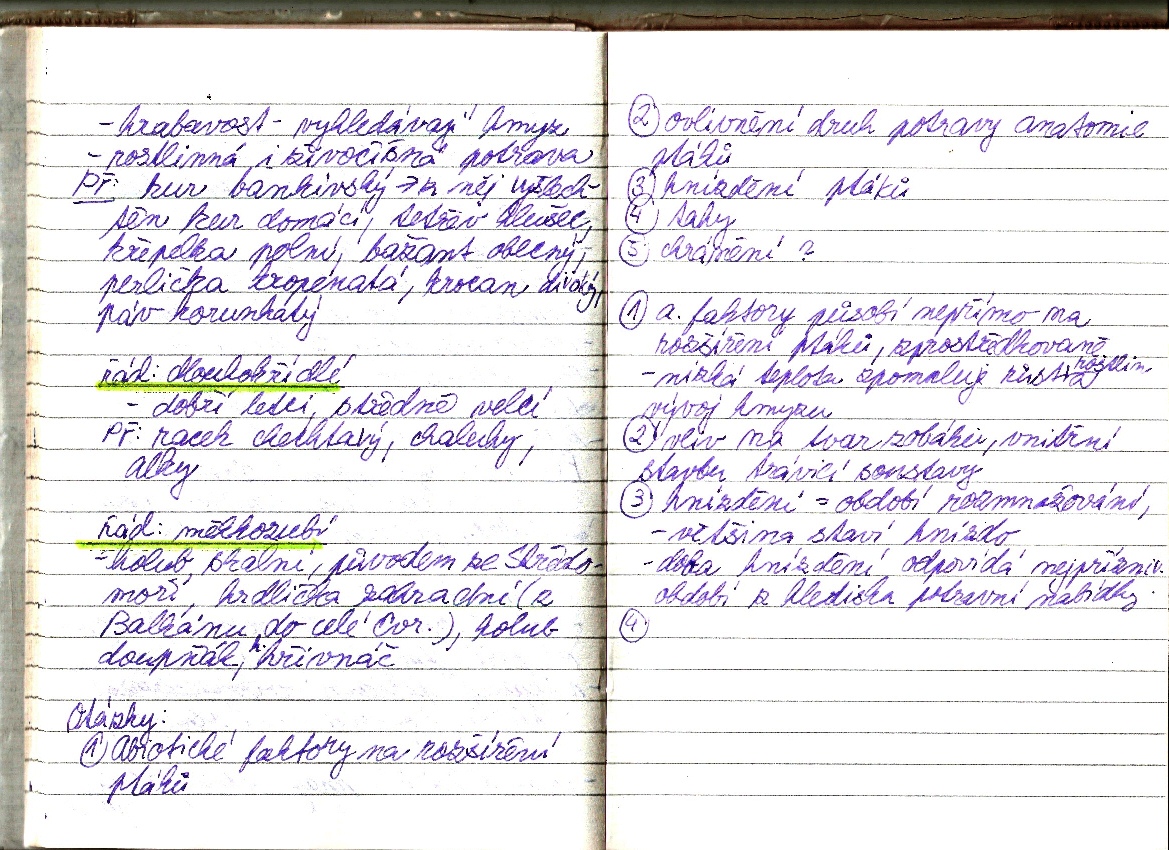 - hrabavost - vyhledávají hmyz
- rostlinná i živočišná potrava
Př: kur bankivský → z něj vyšlech-
těn kur domácí, tetřev hlušec,
křepelka polní, bažant obecný,
perlička kropenatá, krocan divoký,
páv korunkatý
řád: dlouhokřídlé
- dobří letci, středně velcí
Př: racek chechtavý, chaluhy,
alky
řád: měkkozubí
- holub skalní, původem ze Středo-
moří, hrdlička zahradní (z
Balkánu do celé Evr.), holub
doupňák, h. hřivnáč
Otázky:
① Abiotické faktory na rozšíření
ptáků
② ovlivnění druh potravy anatomie
ptáků
③ hnízdění ptáků
④ tahy
⑤ chránění ?
① a. faktory působí nepřímo na
rozšíření ptáků, zprostředkovaně
- nízká teplota zpomaluje růst rostlin
vývoj hmyzu
② vliv na tvar zobáku, vnitřní
stavbu trávicí soustavy
③ hnízdění = období rozmnožování,
- většina staví hnízdo
- doba hnízdění odpovídá nejpřízniv.
období z hlediska potravní nabídky
④